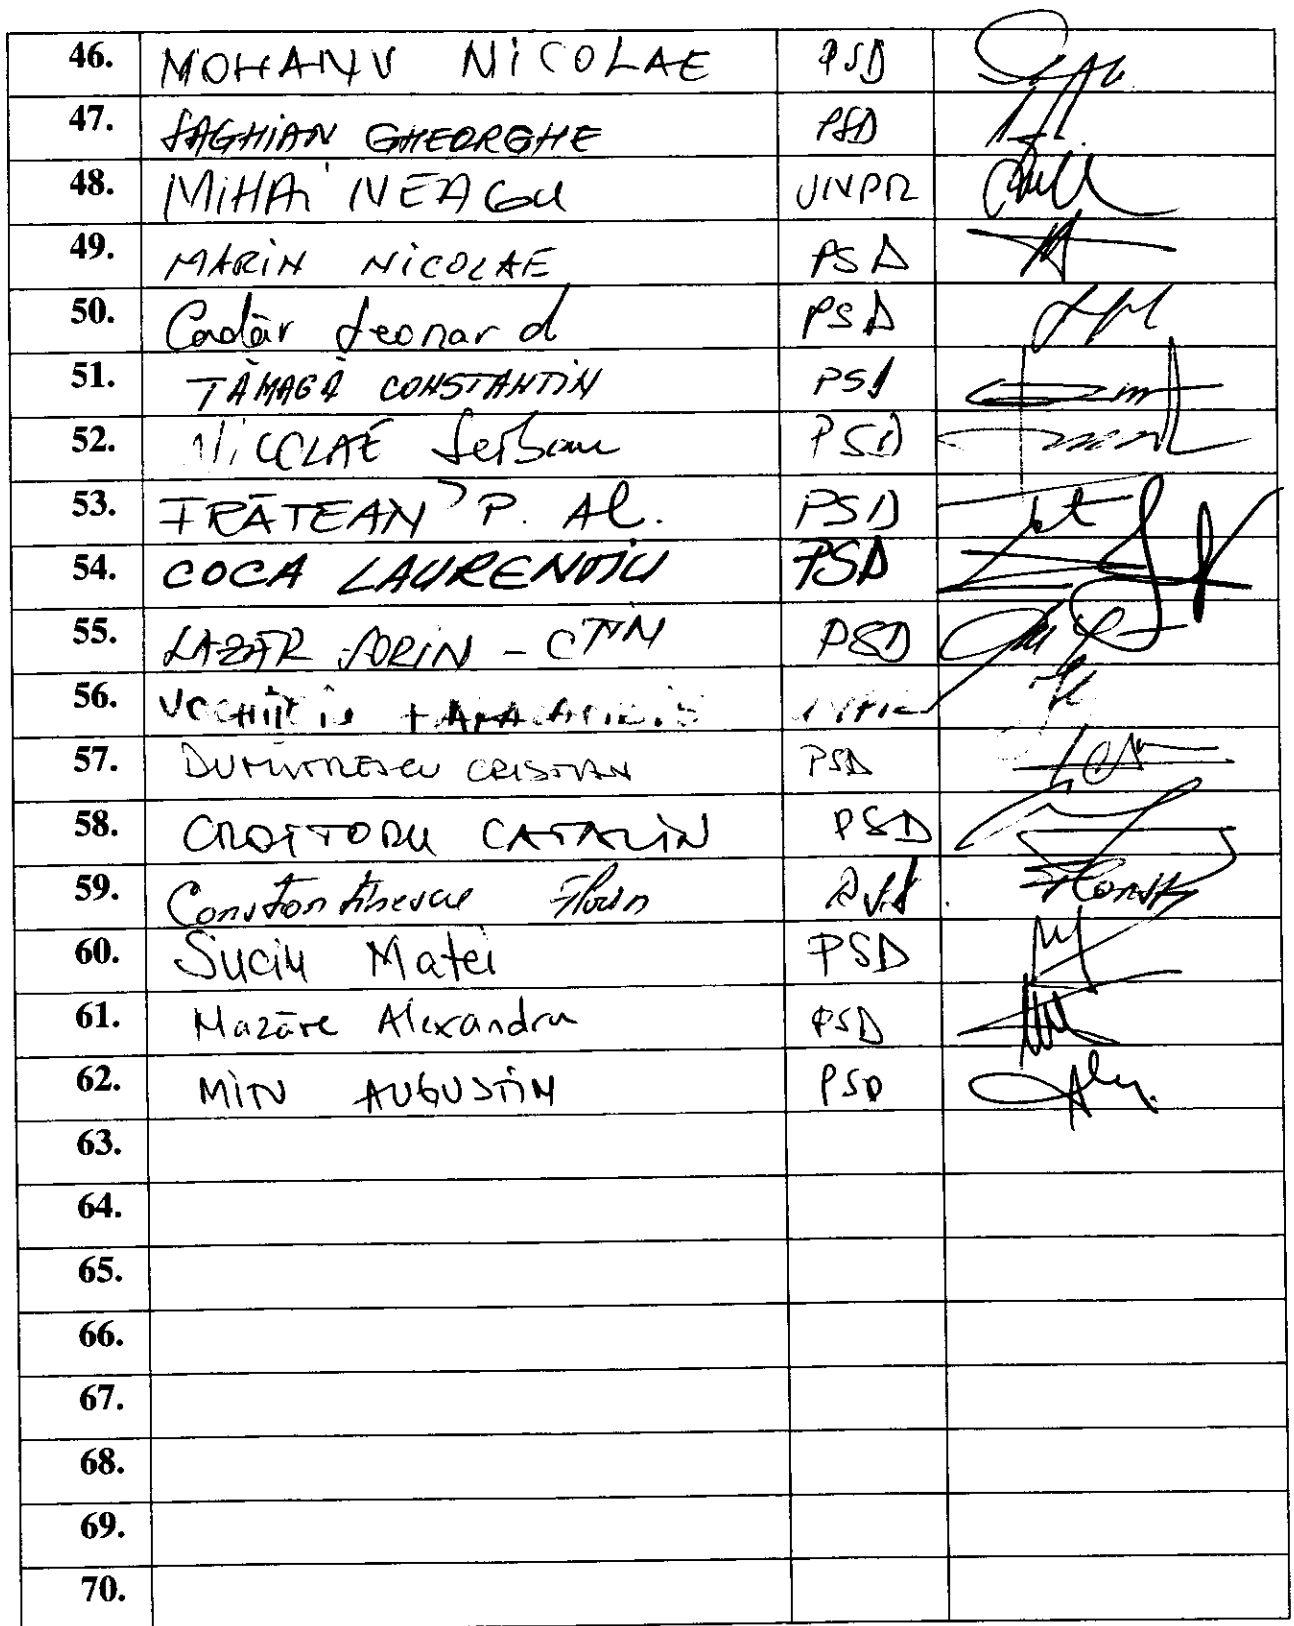 46. MOHANU NiCOLAE PSD
47. SAGHiAN GHEORGHE PSD
48. MiHAi NEAGU UNPR
49. MARiN NiCOLAE PSD
50. Cadăr Leonard PSD
51. TĂMAGĂ CONSTANTiN PSD
52. NiCOLAE Serban PSD
53. FRĂTEAN P. Al. PSD
54. COCA LAURENTIU PSD
55. LAZĂR SORiN - CTiN PSD
56.
57. DUMiTRESCU CRiSTiAN PSD
58. CROiTORU CATALiN PSD
59. Constantinescu Florin
60. Suciu Matei PSD
61. Mazăre Alexandru PSD
62. MiTU AUGUSTiN PSD
63.
64.
65.
66.
67.
68.
69.
70.